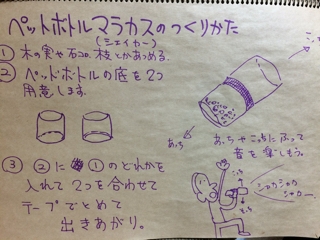 ペットボトルマラカスのつくりかた
(シェイカー)
① 木の実や石コロ、枝とかあつめる。
② ペットボトルの底を2つ
用意します。
③ ②に①のどれかを
入れて2つを合わせて
テープでとめて
出きあがり。
あっち
あっちやこっちにふって
音を楽しもう。
シャカシャカ
シャカー